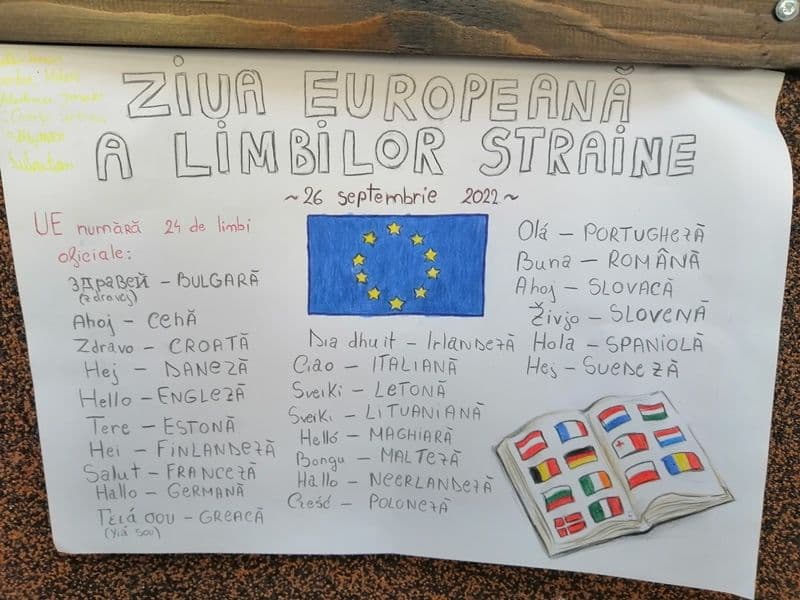 ZIUA EUROPEANĂ
A LIMBILOR STRAINE
~26 septembrie 2022~
UE numără 24 de limbi
oficiale:
Здравей - BULGARĂ
(zdravej)
Ahoj - CEHĂ
Zdravo - CROATĂ
Hej - DANEZĂ
Hello - ENGLEZĂ
Tere - ESTONĂ
Hei - FINLANDEZĂ
Salut - FRANCEZĂ
Hallo - GERMANĂ
Γειά σου - GREACĂ
(Yiá sou)
Dia dhuit - Irlandeză
Ciao - ITALIANĂ
Sveiki - LETONĂ
Sveiki - LITUANIANĂ
Helló - MAGHIARĂ
Bongu - MALTEZĂ
Hallo - NEERLANDEZĂ
Cześć - POLONEZĂ
Olá - PORTUGHEZĂ
Buna - ROMÂNĂ
Ahoj - SLOVACĂ
Živjo - SLOVENĂ
Hola - SPANIOLĂ
Hej - SUEDEZĂ